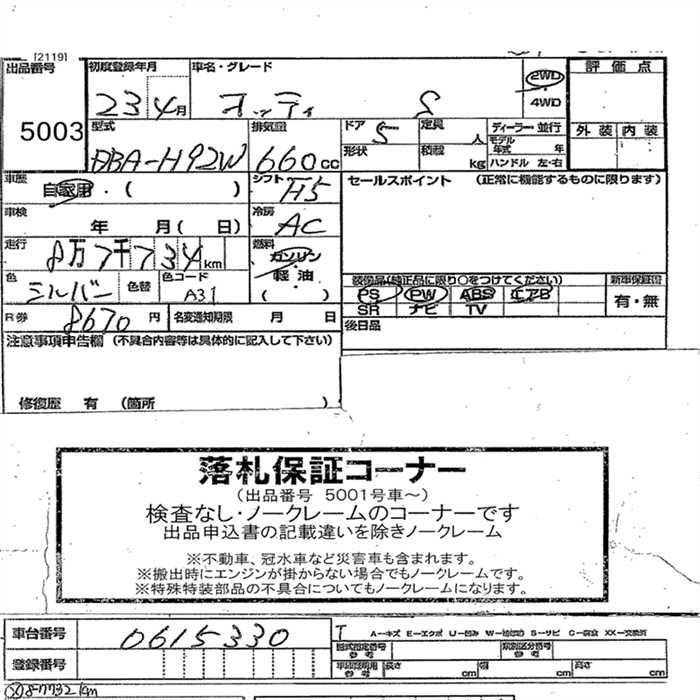 [2119]
出品番号 初度登録年月 車名・グレード 2WD 評価点
23 4月 オッティ S 4WD
5003 型式 排気量 ドア 5 定員 人 ディーラー・並行 外装 内装
DBA-H92W 660cc 形状 積載 kg モデル年式 年 ハンドル 左・右
車歴 自家用・( ) シフト H5 セールスポイント (正常に機能するものに限ります)
車検 年 月( 日) 冷房 AC
走行 8万7千734km 燃料 ガソリン
色 シルバー 色替 色コード A31 軽・油 ( ) 装備品(純正品に限り○をつけてください) 新車保証書
PS PW ABS エアB 有・無
R券 8670円 名変通知期限 月 日 SR ナビ TV
後日品
注意事項申告欄 (不具合内容等は具体的に記入して下さい)
修復歴 有 (箇所 )
落札保証コーナー
(出品番号 5001号車~)
検査なし・ノークレームのコーナーです
出品申込書の記載違いを除きノークレーム
※不動車、冠水車など災害車も含まれます。
※搬出時にエンジンが掛からない場合でもノークレームです。
※特殊特装部品の不具合についてもノークレームになります。
車台番号 0615330 T A-キズ E-エクボ U-凹み S-サビ C-腐食 XX-交換済
型式指定番号 参考 類別区分番号 参考
登録番号 参考 長さ cm 幅 cm 高さ cm
87732km